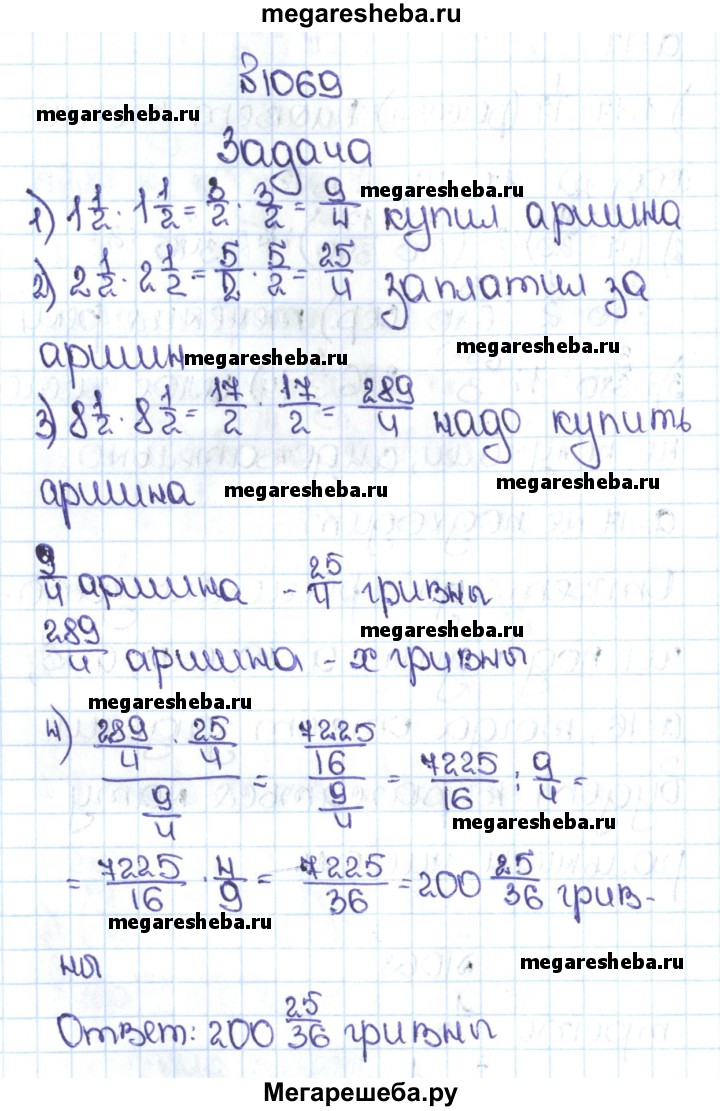 megaresheba.ru
№1069
megaresheba.ru
Задача
megaresheba.ru
1) 1 1/2 · 1 1/2 = 3/2 · 3/2 = 9/4 купил аршина
2) 2 1/2 · 2 1/2 = 5/2 · 5/2 = 25/4 заплатил за
аршин
megaresheba.ru
megaresheba.ru
3) 8 1/2 · 8 1/2 = 17/2 · 17/2 = 289/4 надо купить
аршина
megaresheba.ru
9/4 аршина - 25/4 гривны
megaresheba.ru
289/4 аршина - x гривны
megaresheba.ru
4) (289/4 · 25/4)/(9/4) = (7225/16)/(9/4) = 7225/16 : 9/4 =
megaresheba.ru
= 7225/16 · 4/9 = 7225/36 = 200 25/36 грив-
megaresheba.ru
ны
megaresheba.ru
Ответ: 200 25/36 гривны
Мегарешеба.ру